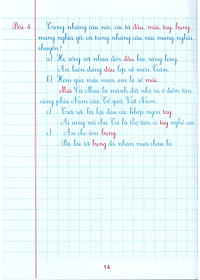 Bài 4 Trong những câu nào, các từ đầu, mũi, tay, bụng
mang nghĩa gốc và trong những câu nào mang nghĩa
chuyển?
a) Họ sống với nhau đến đầu bạc răng long.
An luôn đứng đầu lớp về môn Toán.
b) Hôm qua mắc mưa, em bị sổ mũi.
Mũi Cà Mau là mảnh đất nhô ra ở điểm tận
cùng phía Nam của Tổ quốc Việt Nam.
c) Trời rét, bà lại đau các khớp ngón tay.
Ai cũng nói chú Tư là thợ tiện có tay nghề cao.
d) Ăn cho ấm bụng.
Bà lão tốt bụng đã nhận nuôi cháu bé.
14